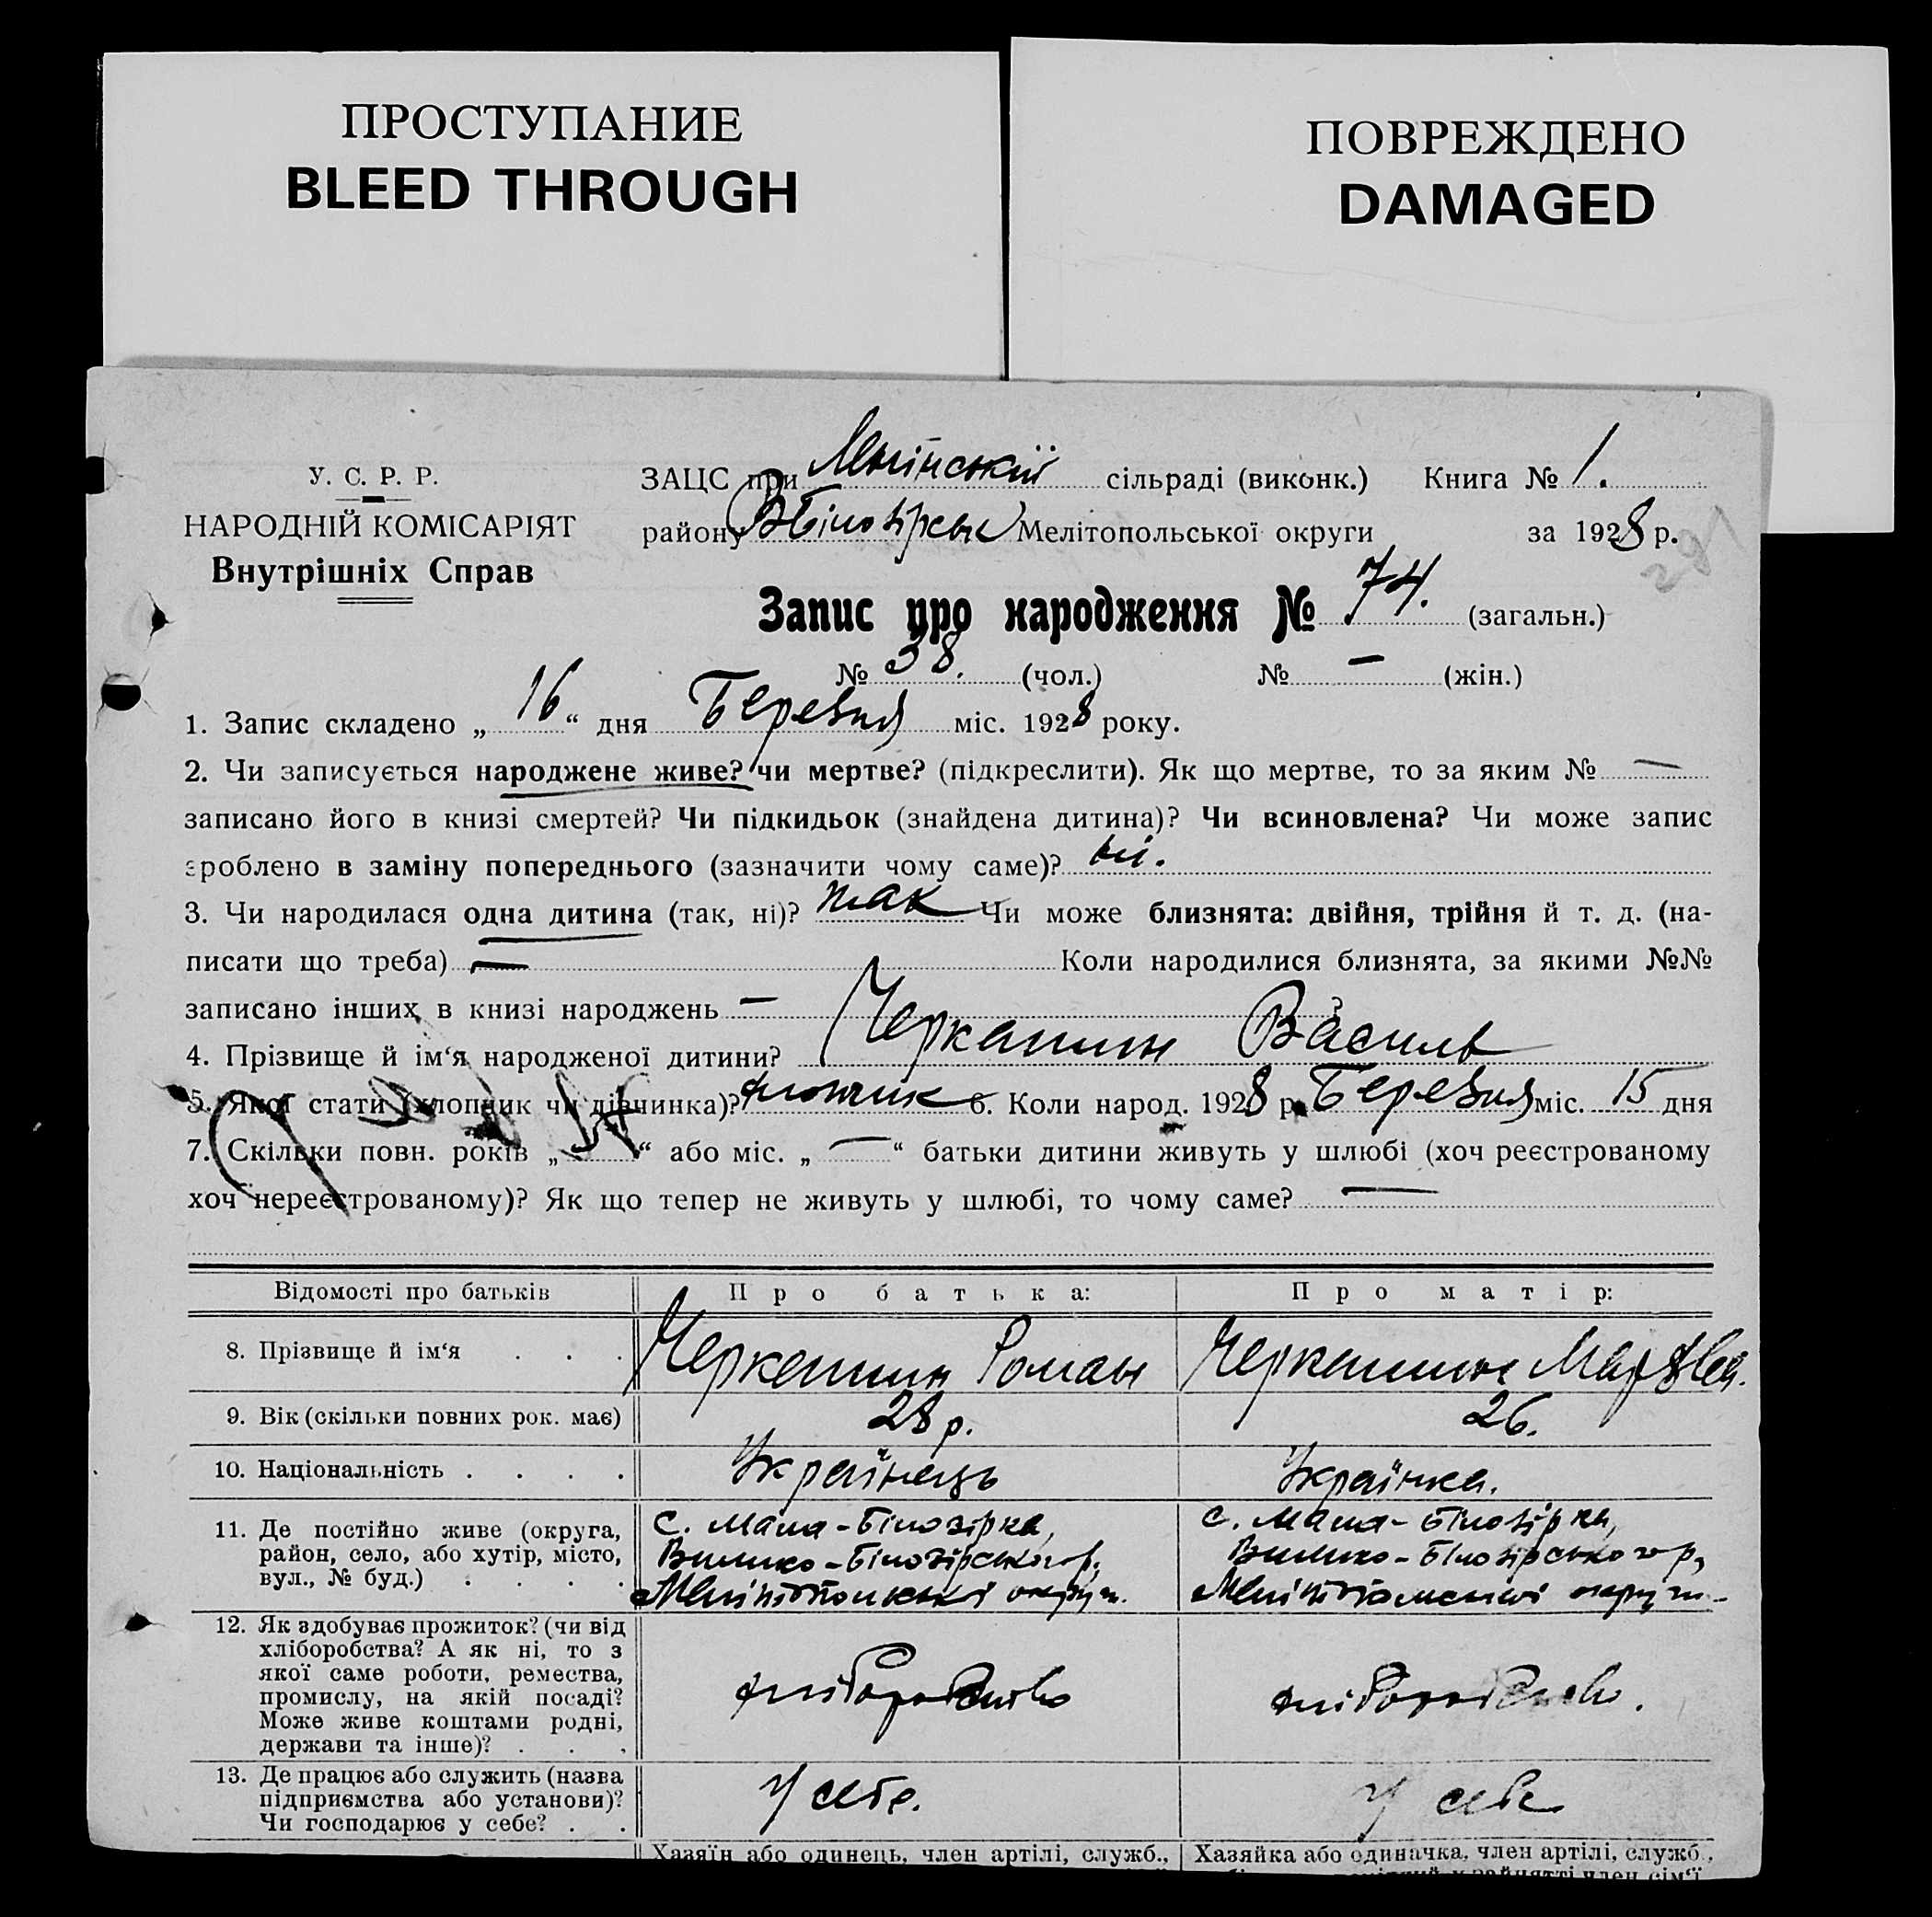 ПРОСТУПАНИЕ
BLEED THROUGH
ПОВРЕЖДЕНО
DAMAGED
У. С. Р. Р.
НАРОДНІЙ КОМІСАРІЯТ
Внутрішніх Справ
ЗАЦС при Ленінській сільраді (виконк.) Книга № 1.
району В Білозірськ Мелітопольської округи за 1928 р.
Запис про народження № 74. (загальн.)
№ 38. (чол.) № — (жін.)
1. Запис складено „ 16 “ дня Березня міс. 1928 року.
2. Чи записується народжене живе? чи мертве? (підкреслити). Як що мертве, то за яким № —
записано його в книзі смертей? Чи підкидьок (знайдена дитина)? Чи всиновлена? Чи може запис
зроблено в заміну попереднього (зазначити чому саме)? ні.
3. Чи народилася одна дитина (так, ні)? так Чи може близнята: двійня, трійня й т. д. (на-
писати що треба) — Коли народилися близнята, за якими №№
записано інших в книзі народжень — ?
4. Прізвище й ім‘я народженої дитини? Черкашин Василь
5. Якої стати (хлопчик чи дівчинка)? хлопчик 6. Коли народ. 1928 р. Березня міс. 15 дня
7. Скільки повн. років „ “ або міс. „ — “ батьки дитини живуть у шлюбі (хоч реєстрованому
хоч нереєстрованому)? Як що тепер не живуть у шлюбі, то чому саме? —
Відомості про батьків Про батька: Про матір:
8. Прізвище й ім‘я . . . Черкашин Роман Черкашина
9. Вік (скільки повних рок. має) 28 р. 26.
10. Національність . . . . Українець Українка.
11. Де постійно живе (округа, с. Мала-Білозірка, с. Мала-Білозірка,
район, село, або хутір, місто, Велико-Білозірського р. Велико-Білозірського р,
вул., № буд.) . . . . Мелітопольської округи. Мелітопольської округи
12. Як здобуває прожиток? (чи від
хліборобства? А як ні, то з
якої саме роботи, ремества,
промислу, на якій посаді? хліборобство хліборобство.
Може живе коштами родні,
держави та інше)? . . .
13. Де працює або служить (назва
підприємства або установи)? У себе. У себе
Чи господарює у себе? . .
Хазяїн або одинець, член артілі, служб., Хазяйка або одиначка, член артілі, служб.,